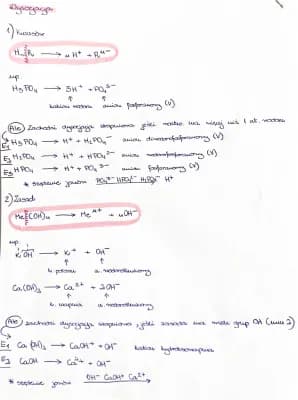 Dysocjacja
1) Kwasów
HnR → nH⁺ + Rⁿ⁻
np.
H₃PO₄ → 3H⁺ + PO₄³⁻
kation wodoru anion fosforanowy (V)
Ale Zachodzi dysocjacja stopniowa jeśli kwas ma więcej niż 1 at. wodoru
E1 H₃PO₄ → H⁺ + H₂PO₄⁻ anion diwodorofosforanowy (V)
E2 H₂PO₄ → H⁺ + HPO₄²⁻ anion wodorofosforanowy (V)
E3 HPO₄ → H⁺ + PO₄³⁻ anion fosforanowy (V)
* stężenie jonów PO₄³⁻ HPO₄²⁻ H₂PO₄⁻ H⁺
2) Zasad
Me(OH)n → Meⁿ⁺ + nOH⁻
np.
KOH → K⁺ + OH⁻
k. potasu a. wodorotlenkowy
Ca(OH)₂ → Ca²⁺ + 2OH⁻
k. wapnia a. wodorotlenkowy
Ale zachodzi dysocjacja stopniowa, jeśli zasada ma wiele grup OH (min 2)
E1 Ca(OH)₂ → CaOH⁺ + OH⁻ kation
E2 CaOH → Ca²⁺ + OH⁻
* stężenie jonów OH⁻ CaOH⁺ Ca²⁺